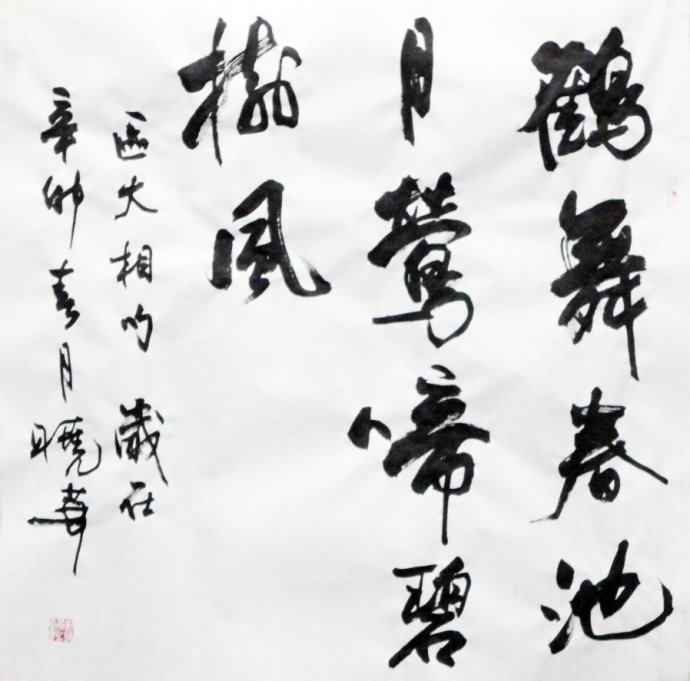 鶴舞春池
月鶯啼碧
樹風
區大相句 歲在
辛卯春月曉春